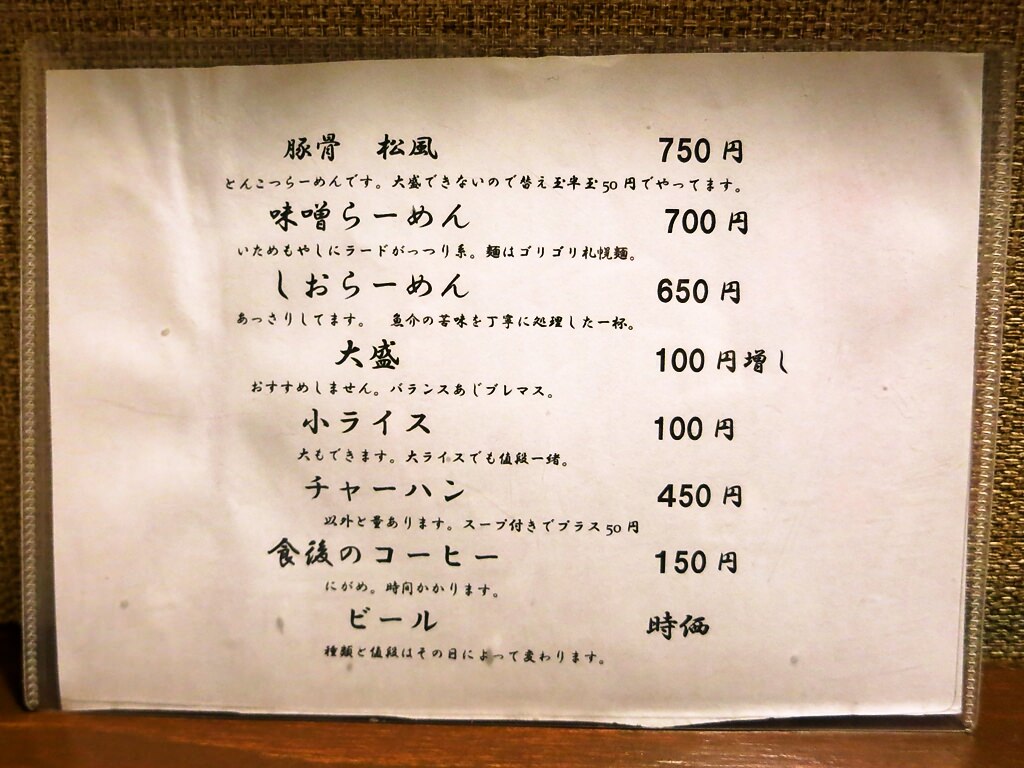 豚骨　松風　750円
とんこつらーめんです。大盛できないので替え玉半玉50円でやってます。
味噌らーめん　700円
いためもやしにラードがっつり系。麺はゴリゴリ札幌麺。
しおらーめん　650円
あっさりしてます。　魚介の苦味を丁寧に処理した一杯。
大盛　100円増し
おすすめしません。バランスあじブレマス。
小ライス　100円
大もできます。大ライスでも値段一緒。
チャーハン　450円
以外と量あります。スープ付きでプラス50円
食後のコーヒー　150円
にがめ。時間かかります。
ビール　時価
種類と値段はその日によって変わります。